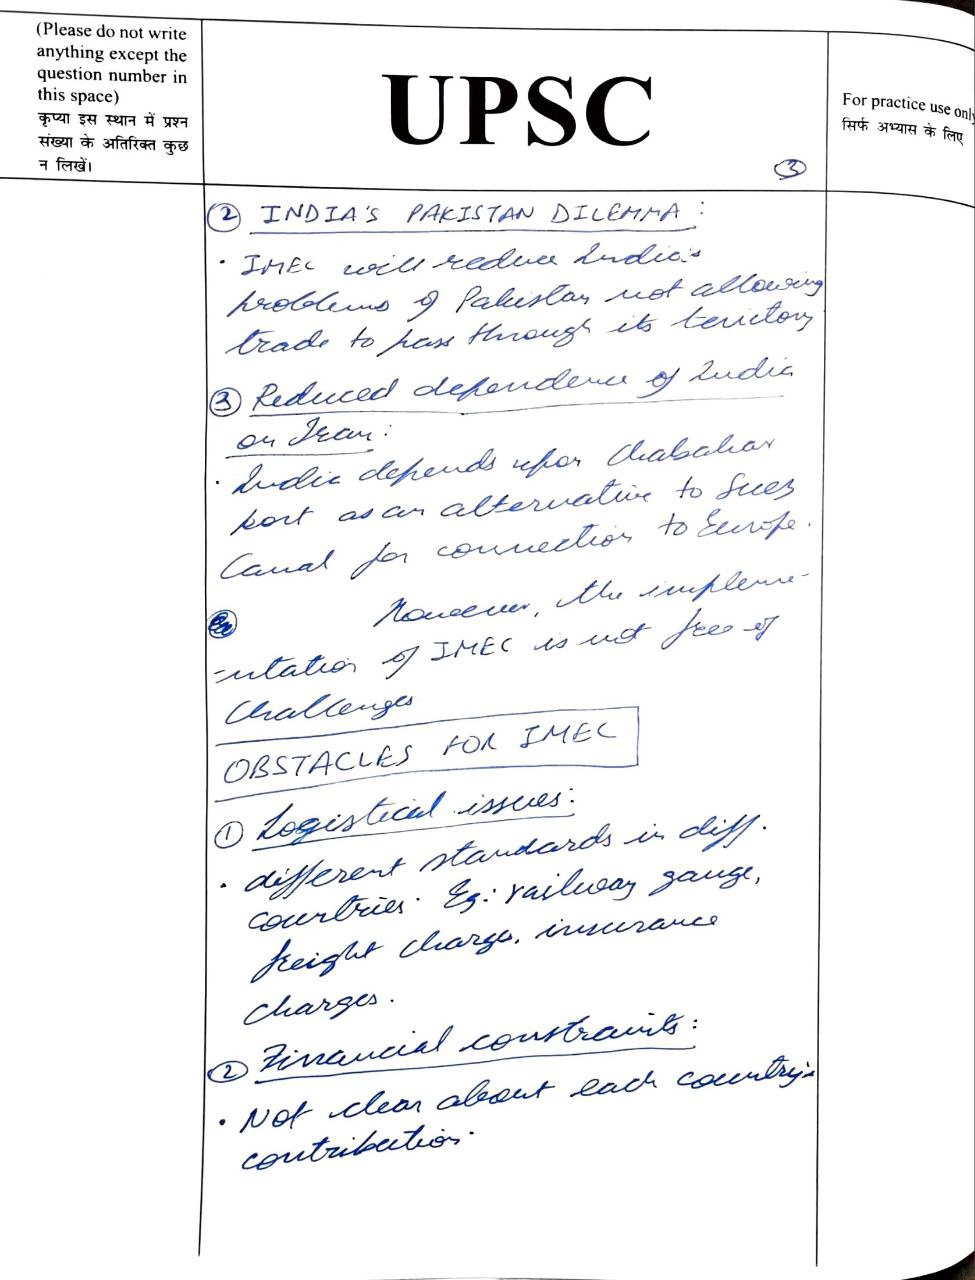 (Please do not write
anything except the
question number in
this space)
कृप्या इस स्थान में प्रश्न
संख्या के अतिरिक्त कुछ
न लिखें।
UPSC
For practice use only
सिर्फ अभ्यास के लिए
3
2 INDIA'S PAKISTAN DILEMMA :
· IMEC will reduce India's
problems of Pakistan not allowing
trade to pass through its territory
3 Reduced dependence of India
on Iran :
· India depends upon Chabahar
port as an alternative to Suez
Canal for connection to Europe.
However, the impleme-
-ntation of IMEC is not free of
challenges
OBSTACLES FOR IMEC
1 Logistical issues :
· different standards in diff.
countries. Eg: railway gauge,
freight charges, insurance
charges.
2 Financial constraints :
· Not clear about each country's
contribution.